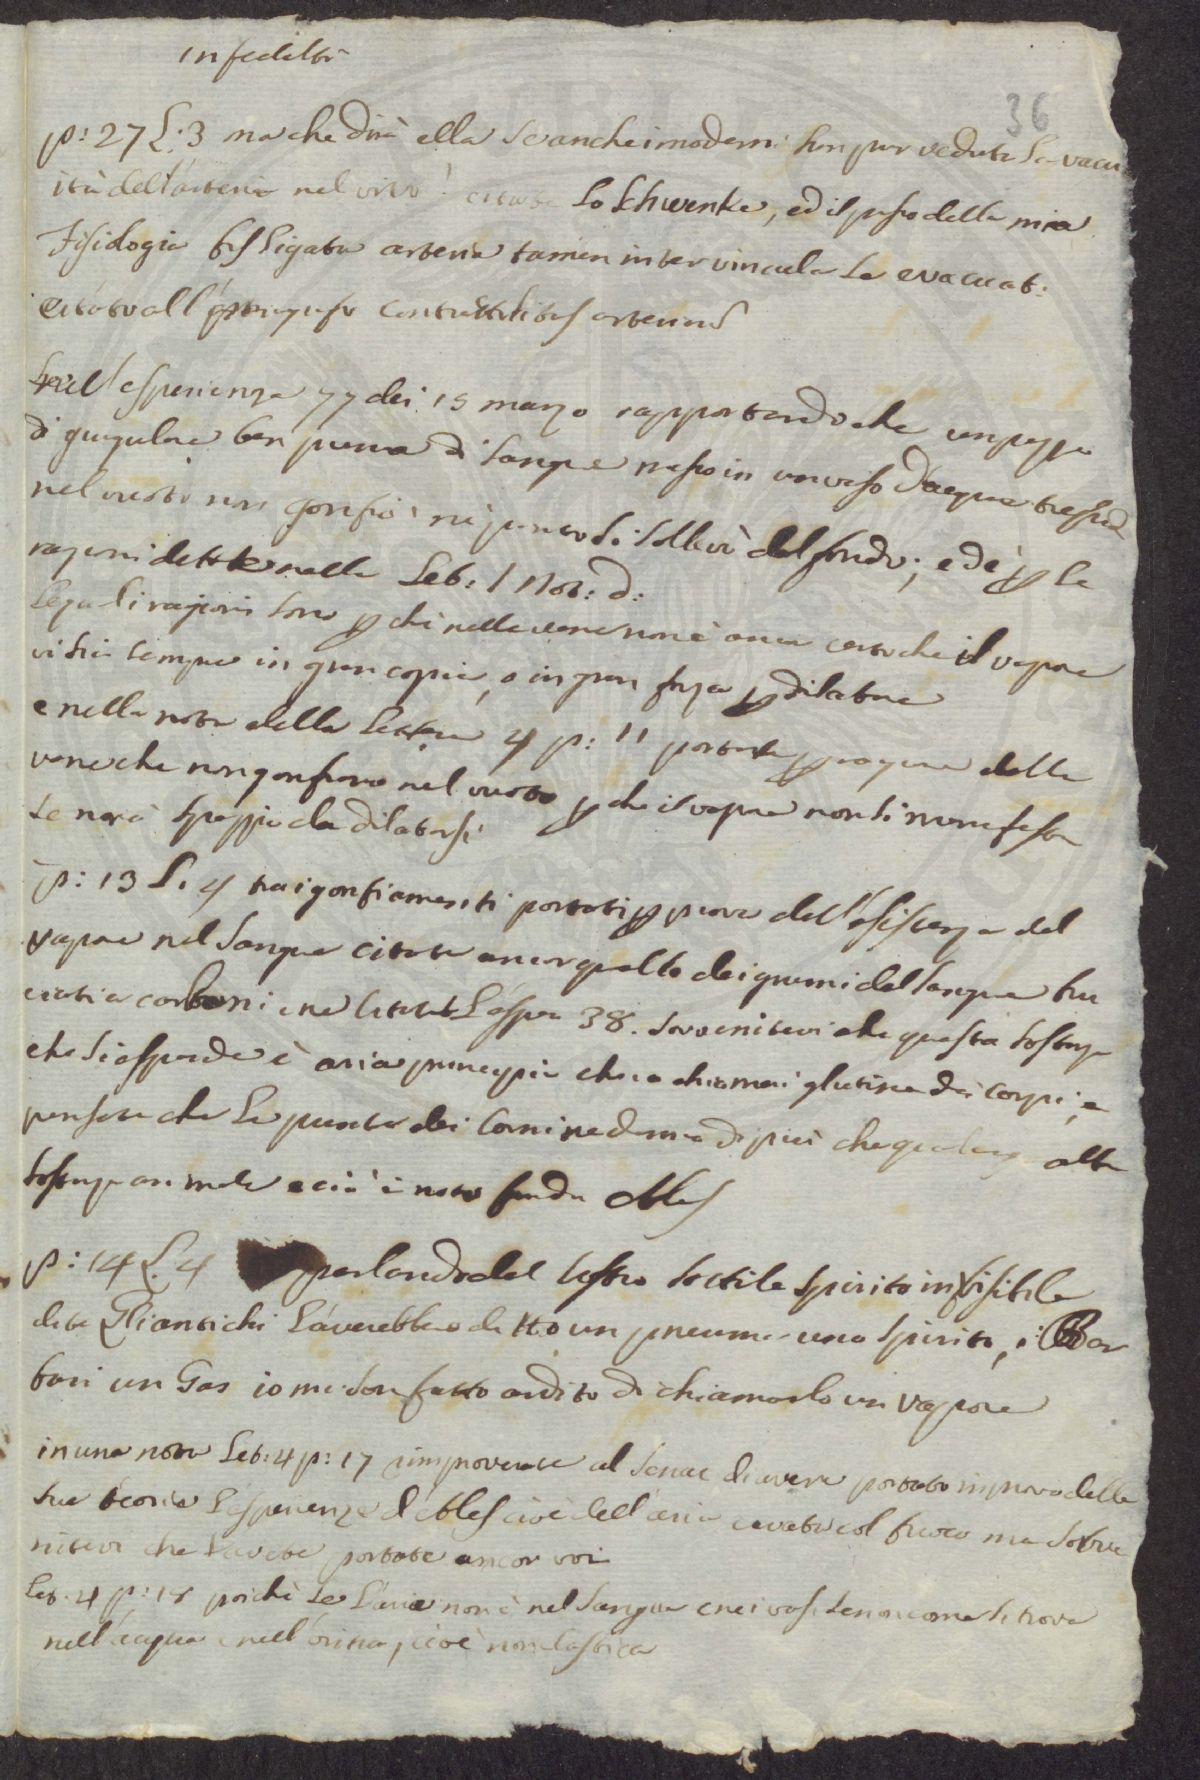 infedeltà
36
p: 27 L: 3 ma che dirà ella se anche i moderni han pur veduta la vacu
ità dell'arteria nel vivo? citate lo Schwenke, ed il passo della mia
Fisiologia bis ligata arteria tamen inter vincula se evacuat:
citato all' contractilitas arteriarum
Nell'esperienza 77 dei 15 marzo rapportando che un pezzo
di giugulare ben piena di sangue messo in un vaso d'acqua
nel vuoto non gonfiò nè punto si sollevò dal fondo; ed è p le
ragioni dette nella Let: 1 Not: d:
le quali ragioni sono p chè nelle vene non è anca certo che il vapore
vi sia sempre in gran copia, o in gran forza p dilatare
e nella nota della Lettera 4 p: 11 portate p ragione delle
vene che non gonfiano nel vuoto p che il vapore non si manifesta
se non à spazzio da dilatarsi
p: 13 L: 4 tra i gonfiamenti portati p prova dell'esistenza del
vapore nel sangue citate ancor quello dei grumi del sangue bru
ciati a carboni e ne citate l'esper 38. sovvenitevi che questa sostanza
che si espande è aria principio che io chiamai glutine dei corpi, e
pensate che le punte dei Corni ne danno di più che qualunque altra
sostanza animale e ciò è noto fin da Ales
p: 14 L: 4 parlando del vostro sottile spirito invisibile
dite Gli antichi l'averebbero detto un pneuma uno spirito, i Bar
bari un Gas io mi son fatto ardito di chiamarlo un vapore
in una nota Let: 4 p: 17 rimproverate al Senac di avere portato in prova della
sua teoria l'esperienze d'Ales cioè dell'aria cavata col fuoco ma sovve
nitevi che l'avete portate ancor voi
Let: 4 p: 18 poichè se l'aria non è nel sangue e nei vasi se non come si trova
nell'acqua e nell'orina, cioè non elastica